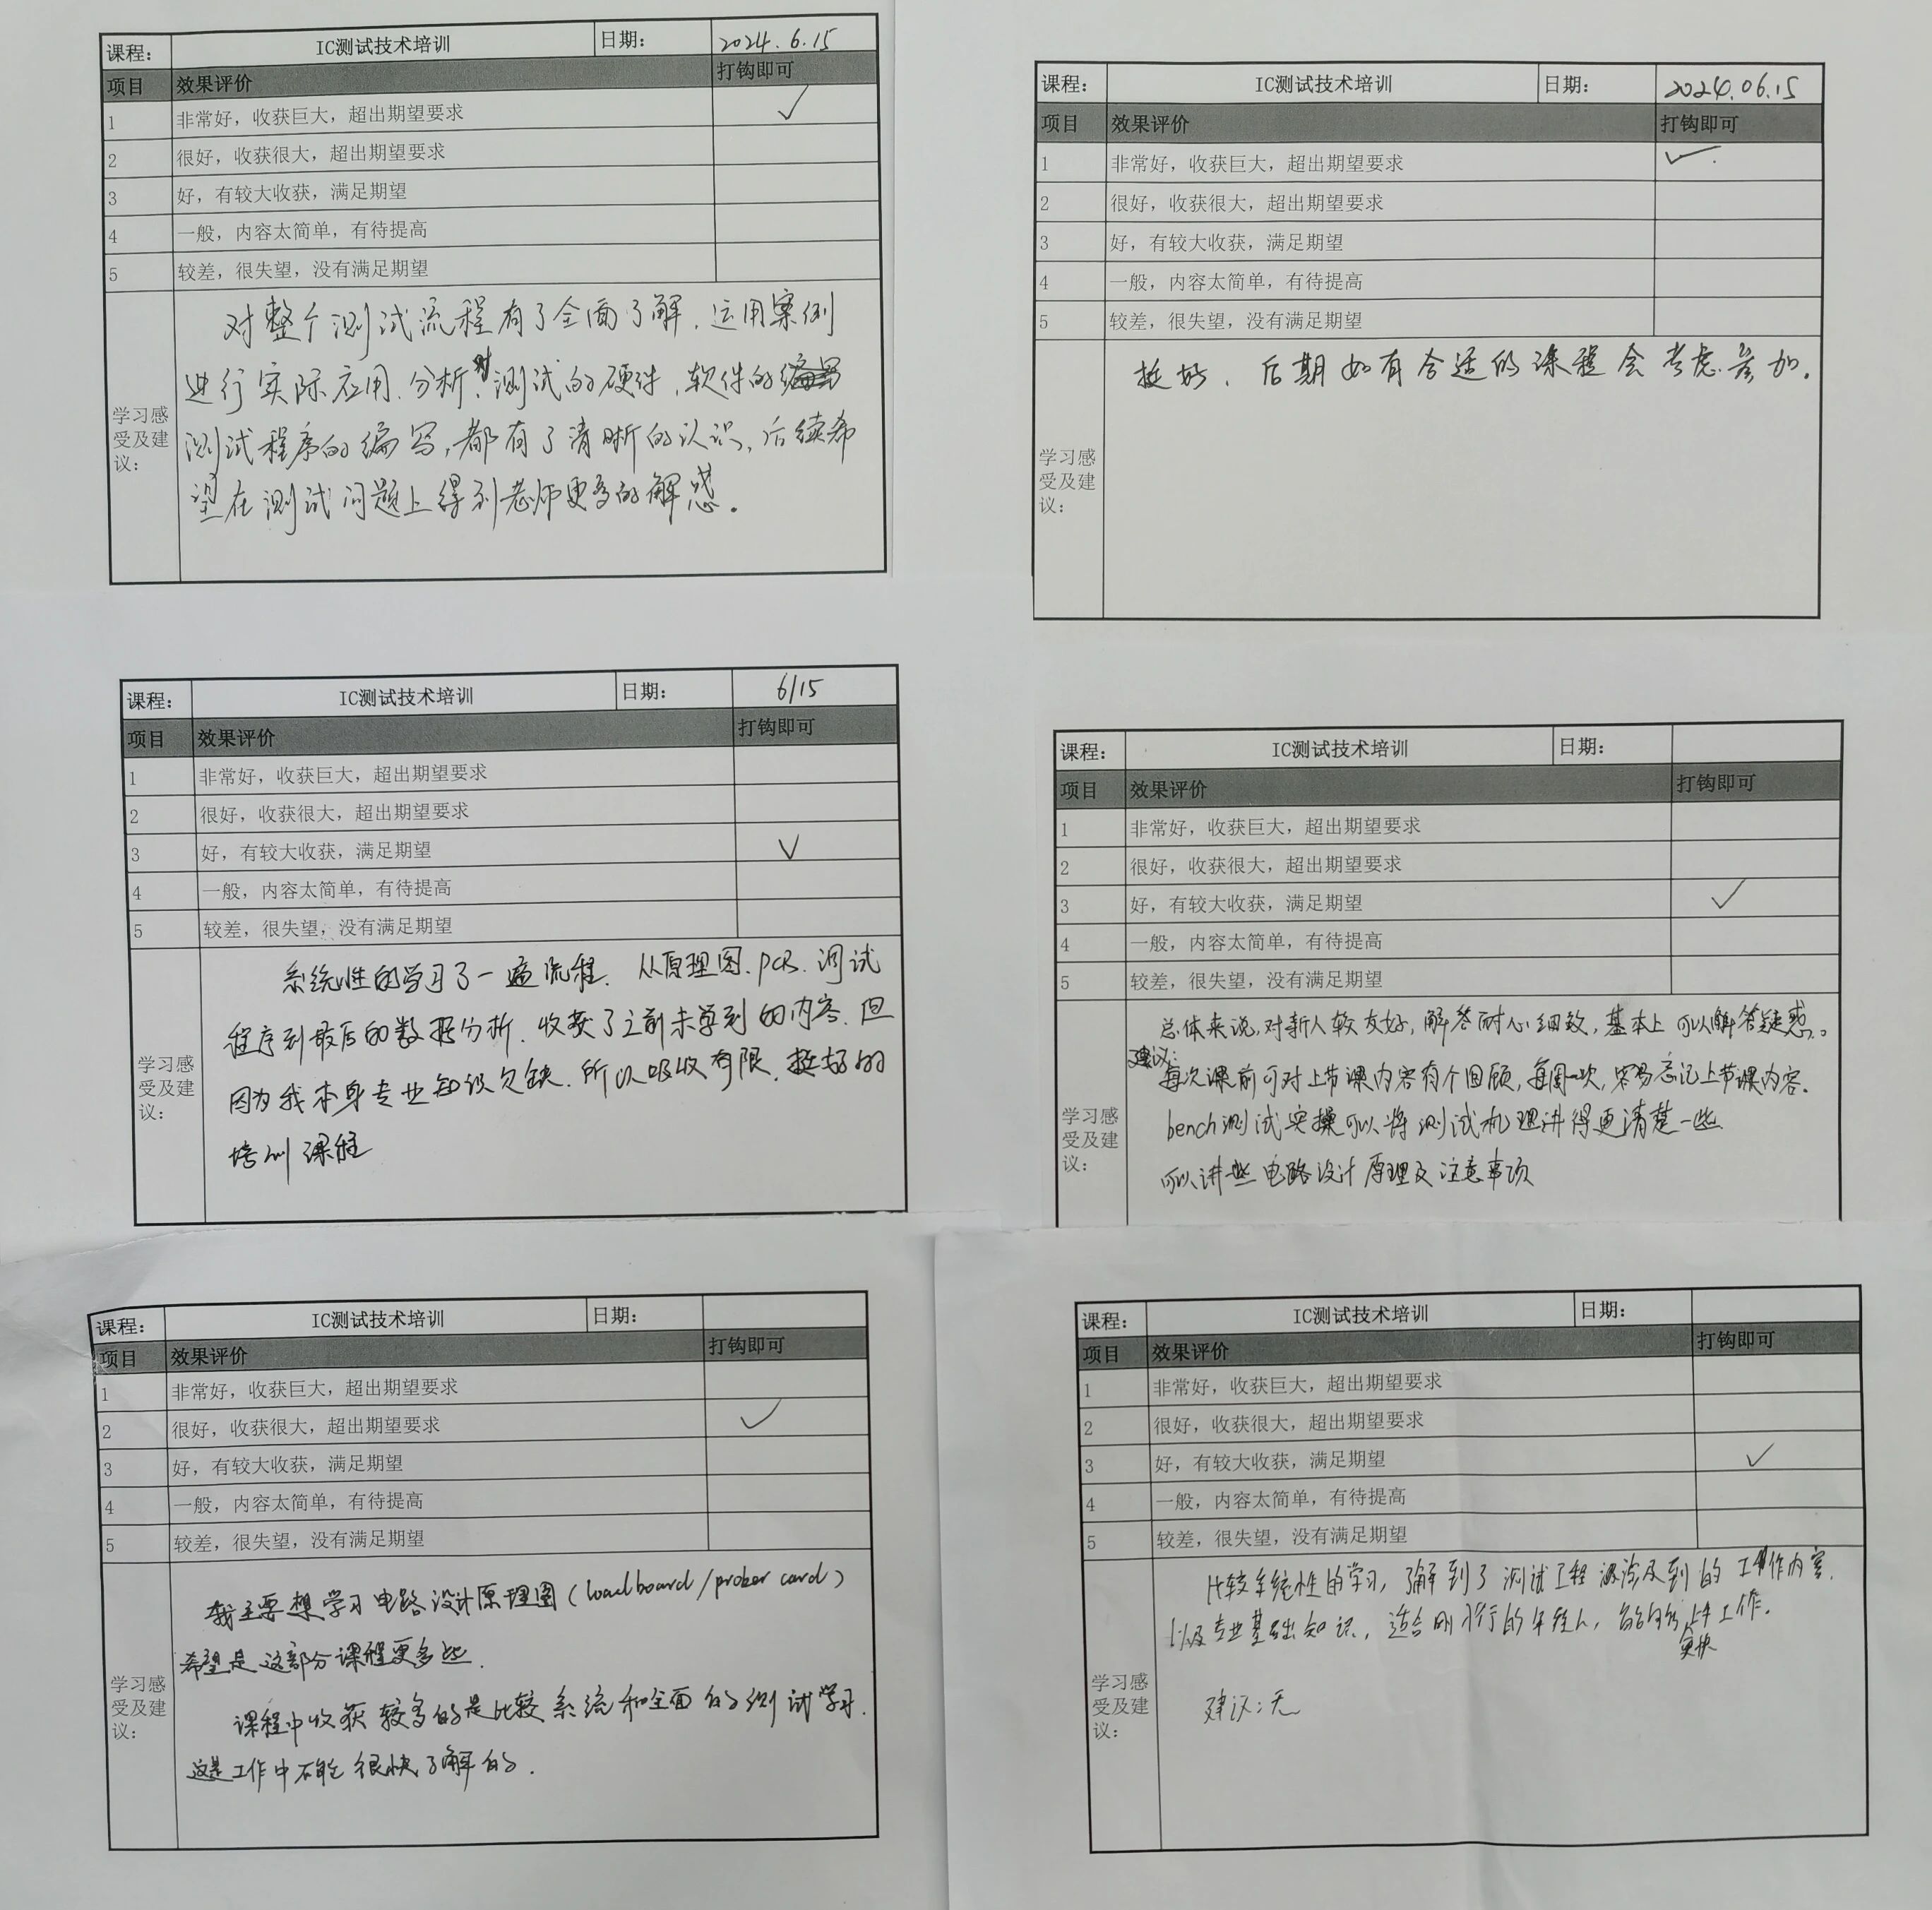 课程： IC测试技术培训 日期： 2024.6.15
项目 效果评价 打钩即可
1 非常好，收获巨大，超出期望要求 ✓
2 很好，收获很大，超出期望要求
3 好，有较大收获，满足期望
4 一般，内容太简单，有待提高
5 较差，很失望，没有满足期望
学习感受及建议：
对整个测试流程有了全面了解，运用案例
进行实际应用、分析，对测试的硬件，软件的
测试程序的编写，都有了清晰的认识，后续希
望在测试问题上得到老师更多的解惑。
课程： IC测试技术培训 日期： 2024.06.15
项目 效果评价 打钩即可
1 非常好，收获巨大，超出期望要求 ✓
2 很好，收获很大，超出期望要求
3 好，有较大收获，满足期望
4 一般，内容太简单，有待提高
5 较差，很失望，没有满足期望
学习感受及建议：
挺好、后期如有合适的课程会考虑参加.
课程： IC测试技术培训 日期： 6/15
项目 效果评价 打钩即可
1 非常好，收获巨大，超出期望要求
2 很好，收获很大，超出期望要求
3 好，有较大收获，满足期望 ✓
4 一般，内容太简单，有待提高
5 较差，很失望，没有满足期望
学习感受及建议：
系统性的学习了一遍流程. 从原理图、PCB、测试
程序到最后的数据分析. 收获了之前未学到的内容. 但
因为我本身专业知识欠缺. 所以吸收有限. 挺好的
培训课程
课程： IC测试技术培训 日期：
项目 效果评价 打钩即可
1 非常好，收获巨大，超出期望要求
2 很好，收获很大，超出期望要求
3 好，有较大收获，满足期望 ✓
4 一般，内容太简单，有待提高
5 较差，很失望，没有满足期望
学习感受及建议：
总体来说，对新人较友好，解答耐心细致，基本上可以解答疑惑。
建议：
每次课前可对上节课内容有个回顾，每周一次，容易忘记上节课内容.
bench测试实操可以将测试机理讲得更清楚一些
可以讲些电路设计原理及注意事项
课程： IC测试技术培训 日期：
项目 效果评价 打钩即可
1 非常好，收获巨大，超出期望要求
2 很好，收获很大，超出期望要求 ✓
3 好，有较大收获，满足期望
4 一般，内容太简单，有待提高
5 较差，很失望，没有满足期望
学习感受及建议：
我主要想学习电路设计原理图（loadboard/prober card）
希望是这部分课程更多些.
课程中收获较多的是比较系统和全面的测试学习.
这是工作中不能很快了解的.
课程： IC测试技术培训 日期：
项目 效果评价 打钩即可
1 非常好，收获巨大，超出期望要求
2 很好，收获很大，超出期望要求
3 好，有较大收获，满足期望 ✓
4 一般，内容太简单，有待提高
5 较差，很失望，没有满足期望
学习感受及建议：
比较系统性的学习，了解到了测试工程涉及到的工作内容.
以及专业基础知识，适合刚入行的年轻人，能够更快上手工作.
建议：无